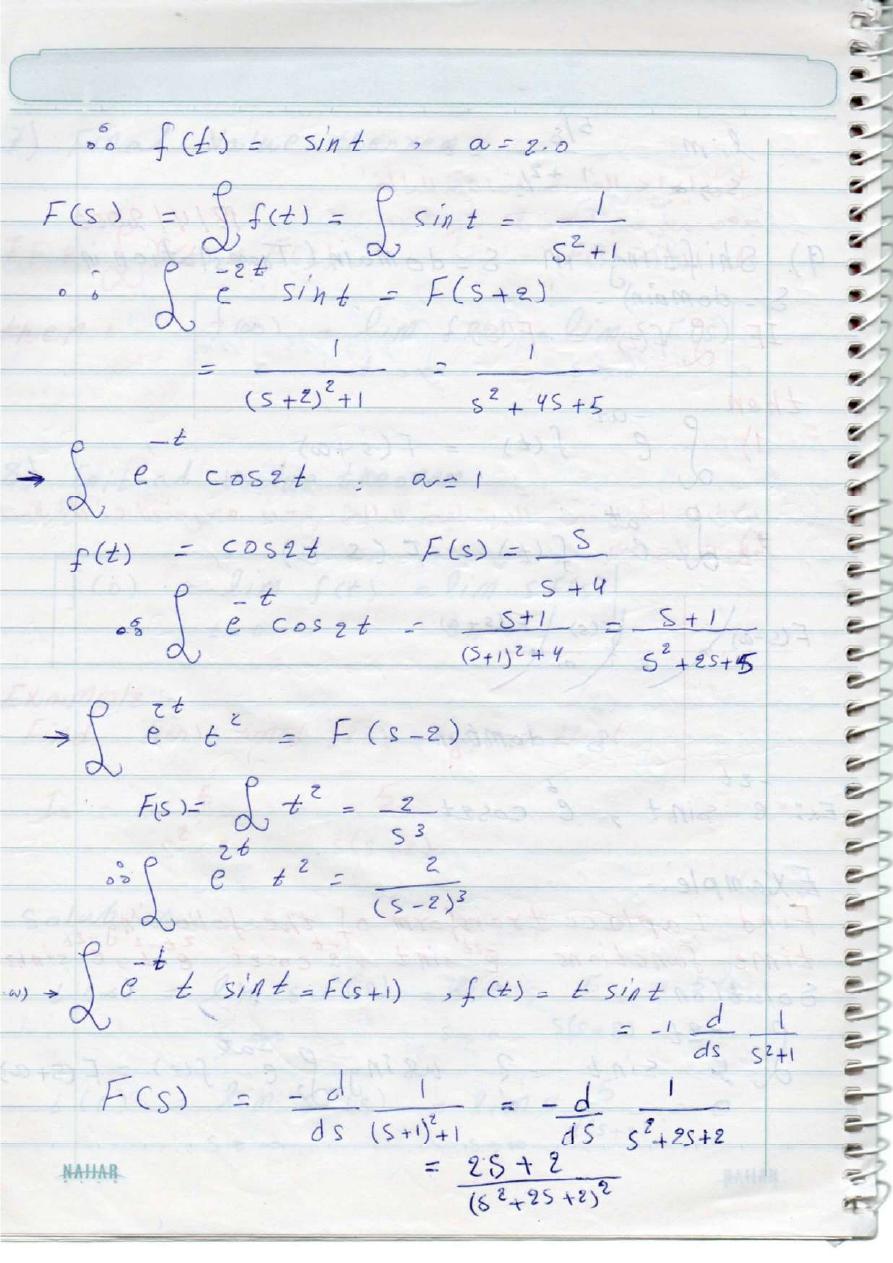 ∴ f(t) = sint , a = 2.0
F(s) = ℒ f(t) = ℒ sint = 1/(s²+1)
∴ ℒ e^{-2t} sint = F(s+2)
= 1/((s+2)²+1) = 1/(s²+4s+5)
→ ℒ e^{-t} cos2t : a=1
f(t) = cos2t F(s) = s/(s+4)
∴ ℒ e^{-t} cos2t = (s+1)/((s+1)²+4) = (s+1)/(s²+2s+5)
→ ℒ e^{2t} t² = F(s-2)
F(s) = ℒ t² = 2/s³
∴ ℒ e^{2t} t² = 2/(s-2)³
w) → ℒ e^{-t} t sint = F(s+1) , f(t) = t sint
= -1 d/ds 1/(s²+1)
F(s) = -d/ds 1/((s+1)²+1) = -d/ds 1/(s²+2s+2)
= (2s+2)/(s²+2s+2)²
NAJJAR